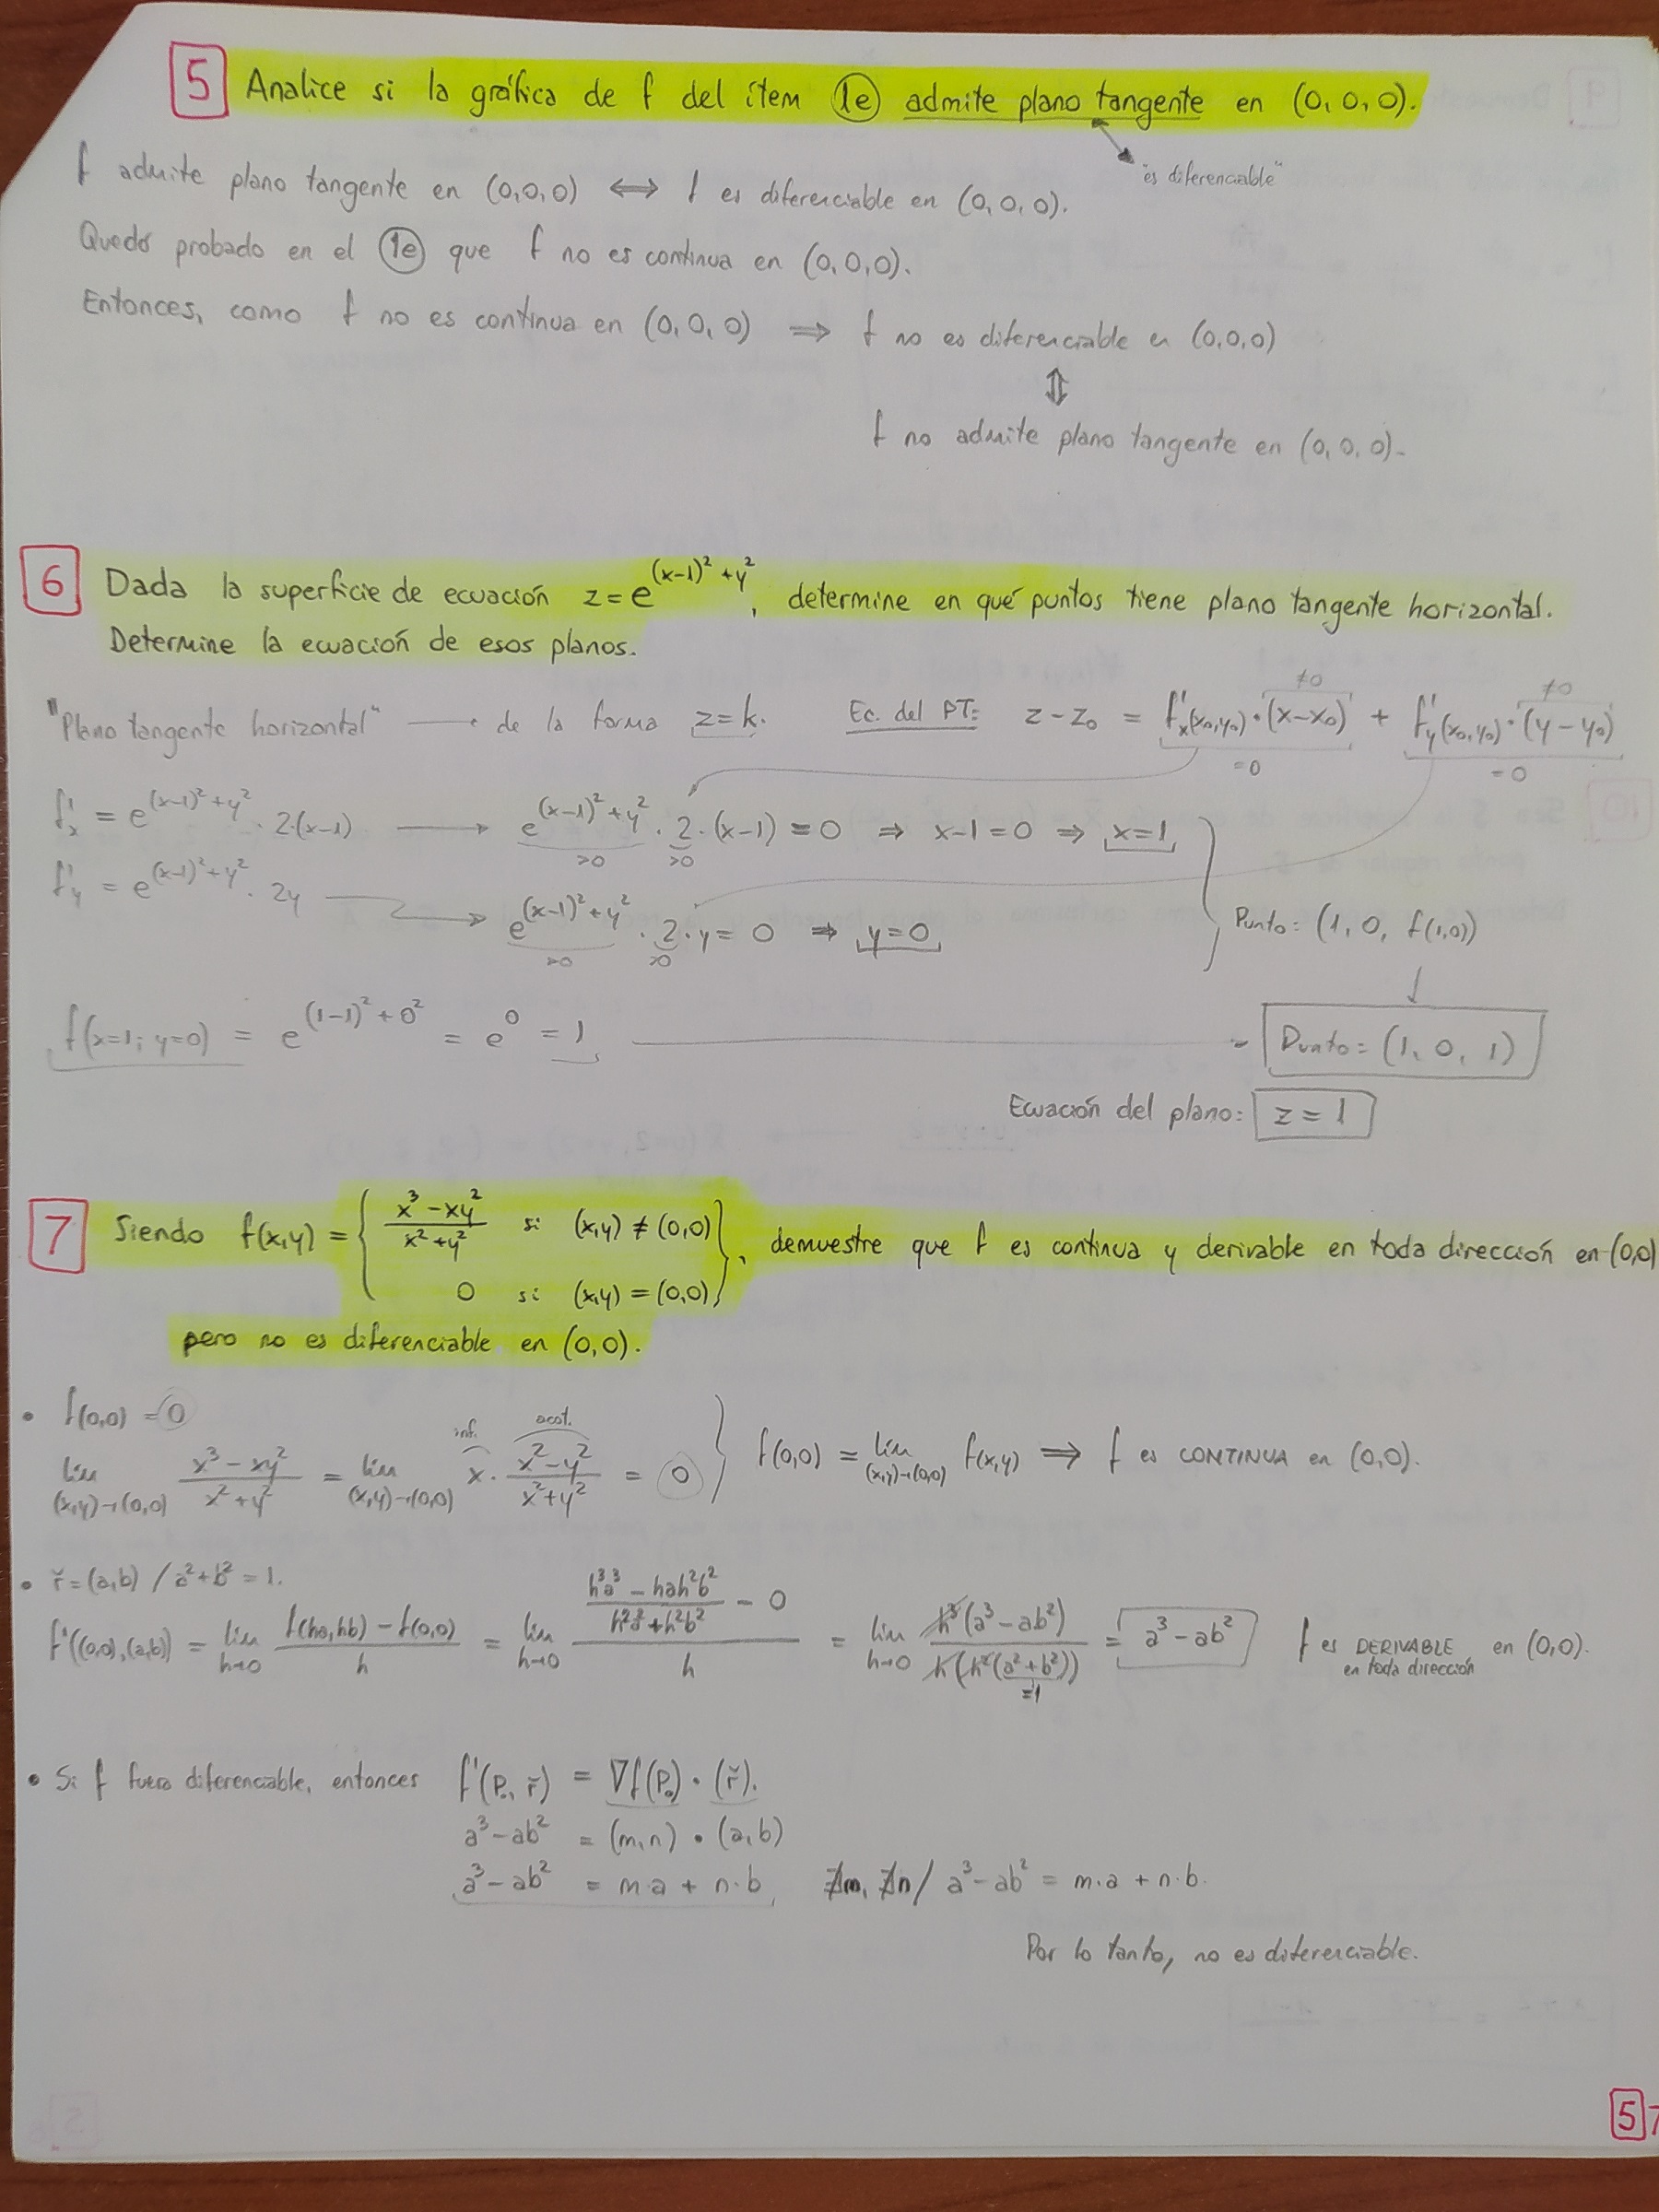 5 Analice si la gráfica de f del ítem 1e admite plano tangente en (0,0,0).
"es diferenciable"
f admite plano tangente en (0,0,0) ⟺ f es diferenciable en (0,0,0).
Quedó probado en el 1e que f no es continua en (0,0,0).
Entonces, como f no es continua en (0,0,0) ⟹ f no es diferenciable en (0,0,0)
⇕
f no admite plano tangente en (0,0,0).
6 Dada la superficie de ecuación z = e^((x-1)²+y²), determine en qué puntos tiene plano tangente horizontal.
Determine la ecuación de esos planos.
"Plano tangente horizontal" → de la forma z=k. Ec. del PT: z - z₀ = f'x(x₀,y₀)·(x-x₀) + f'y(x₀,y₀)·(y-y₀)
≠0 ≠0
=0 =0
f'x = e^((x-1)²+y²) · 2·(x-1) → e^((x-1)²+y²) · 2 · (x-1) = 0 ⇒ x-1=0 ⇒ x=1
>0 >0
f'y = e^((x-1)²+y²) · 2y → e^((x-1)²+y²) · 2 · y = 0 ⇒ y=0
>0 >0
Punto: (1, 0, f(1,0))
f(x=1; y=0) = e^((1-1)²+0²) = e⁰ = 1 → Punto: (1, 0, 1)
Ecuación del plano: z = 1
7 Siendo f(x,y) = { (x³-xy²)/(x²+y²) si (x,y) ≠ (0,0)
0 si (x,y) = (0,0) }, demuestre que f es continua y derivable en toda dirección en (0,0)
pero no es diferenciable en (0,0).
• f(0,0) = 0
inf. acot.
lím (x,y)→(0,0) (x³-xy²)/(x²+y²) = lím (x,y)→(0,0) x · (x²-y²)/(x²+y²) = 0 } f(0,0) = lím (x,y)→(0,0) f(x,y) ⟹ f es CONTINUA en (0,0).
• ř = (a,b) / a²+b² = 1.
f'((0,0),(a,b)) = lím h→0 (f(ha,hb) - f(0,0))/h = lím h→0 ((h³a³ - hah²b²)/(h²a²+h²b²) - 0)/h = lím h→0 h³(a³-ab²)/(h(h²(a²+b²))) = a³-ab² f es DERIVABLE en (0,0).
=1
en toda dirección
• Si f fuera diferenciable, entonces f'(P₀, ř) = ∇f(P₀) · (ř).
a³-ab² = (m,n) · (a,b)
a³-ab² = m·a + n·b, ∄m, ∄n / a³-ab² = m·a + n·b.
Por lo tanto, no es diferenciable.
57